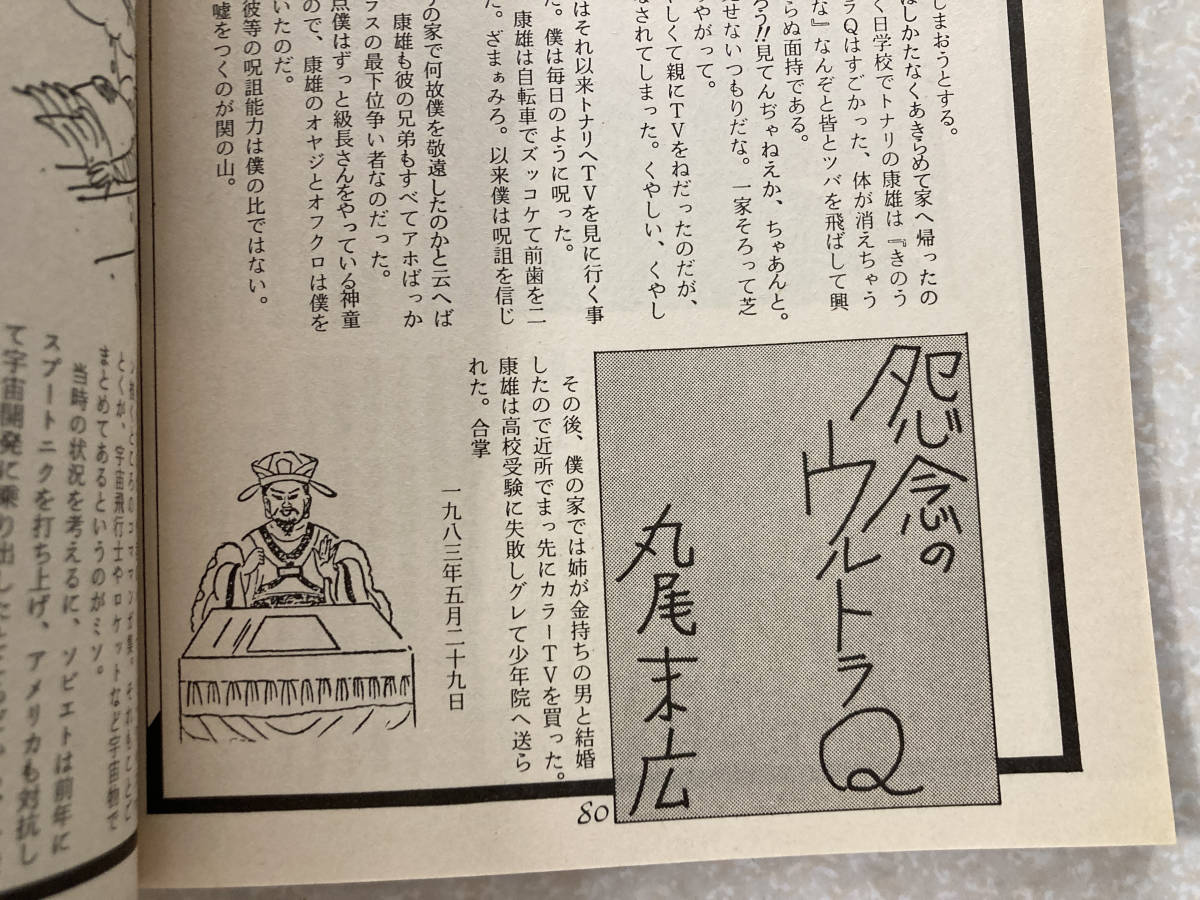 しまおうとする。
はしかたなくあきらめて家へ帰ったの
く日学校でトナリの康雄は『きのう
ラQはすごかった、体が消えちゃう
な』なんぞと皆とツバを飛ばして興
らぬ面持である。
ろう!!見てんぢゃねえか、ちゃあんと。
見せないつもりだな。一家そろって芝
やがって。
やしくて親にTVをねだったのだが、
なされてしまった。くやしい、くやし
はそれ以来トナリへTVを見に行く事
た。僕は毎日のように呪った。
康雄は自転車でズッコケて前歯を二
た。ざまぁみろ。以来僕は呪詛を信じ
の家で何故僕を敬遠したのかと云へば
康雄も彼の兄弟もすべてアホばっか
ラスの最下位争い者なのだった。
点僕はずっと級長さんをやっている神童
ので、康雄のオヤジとオフクロは僕を
いたのだ。
彼等の呪詛能力は僕の比ではない。
嘘をつくのが関の山。
怨念の
ウルトラQ
丸尾末広
その後、僕の家では姉が金持ちの男と結婚
したので近所でまっ先にカラーTVを買った。
康雄は高校受験に失敗しグレて少年院へ送ら
れた。合掌
一九八三年五月二十九日
80
とくが、宇宙飛行士やロケットなど宇宙物で
まとめてあるというのがミソ。
当時の状況を考えるに、ソビエトは前年に
スプートニクを打ち上げ、アメリカも対抗し
て宇宙開発に乗り出した